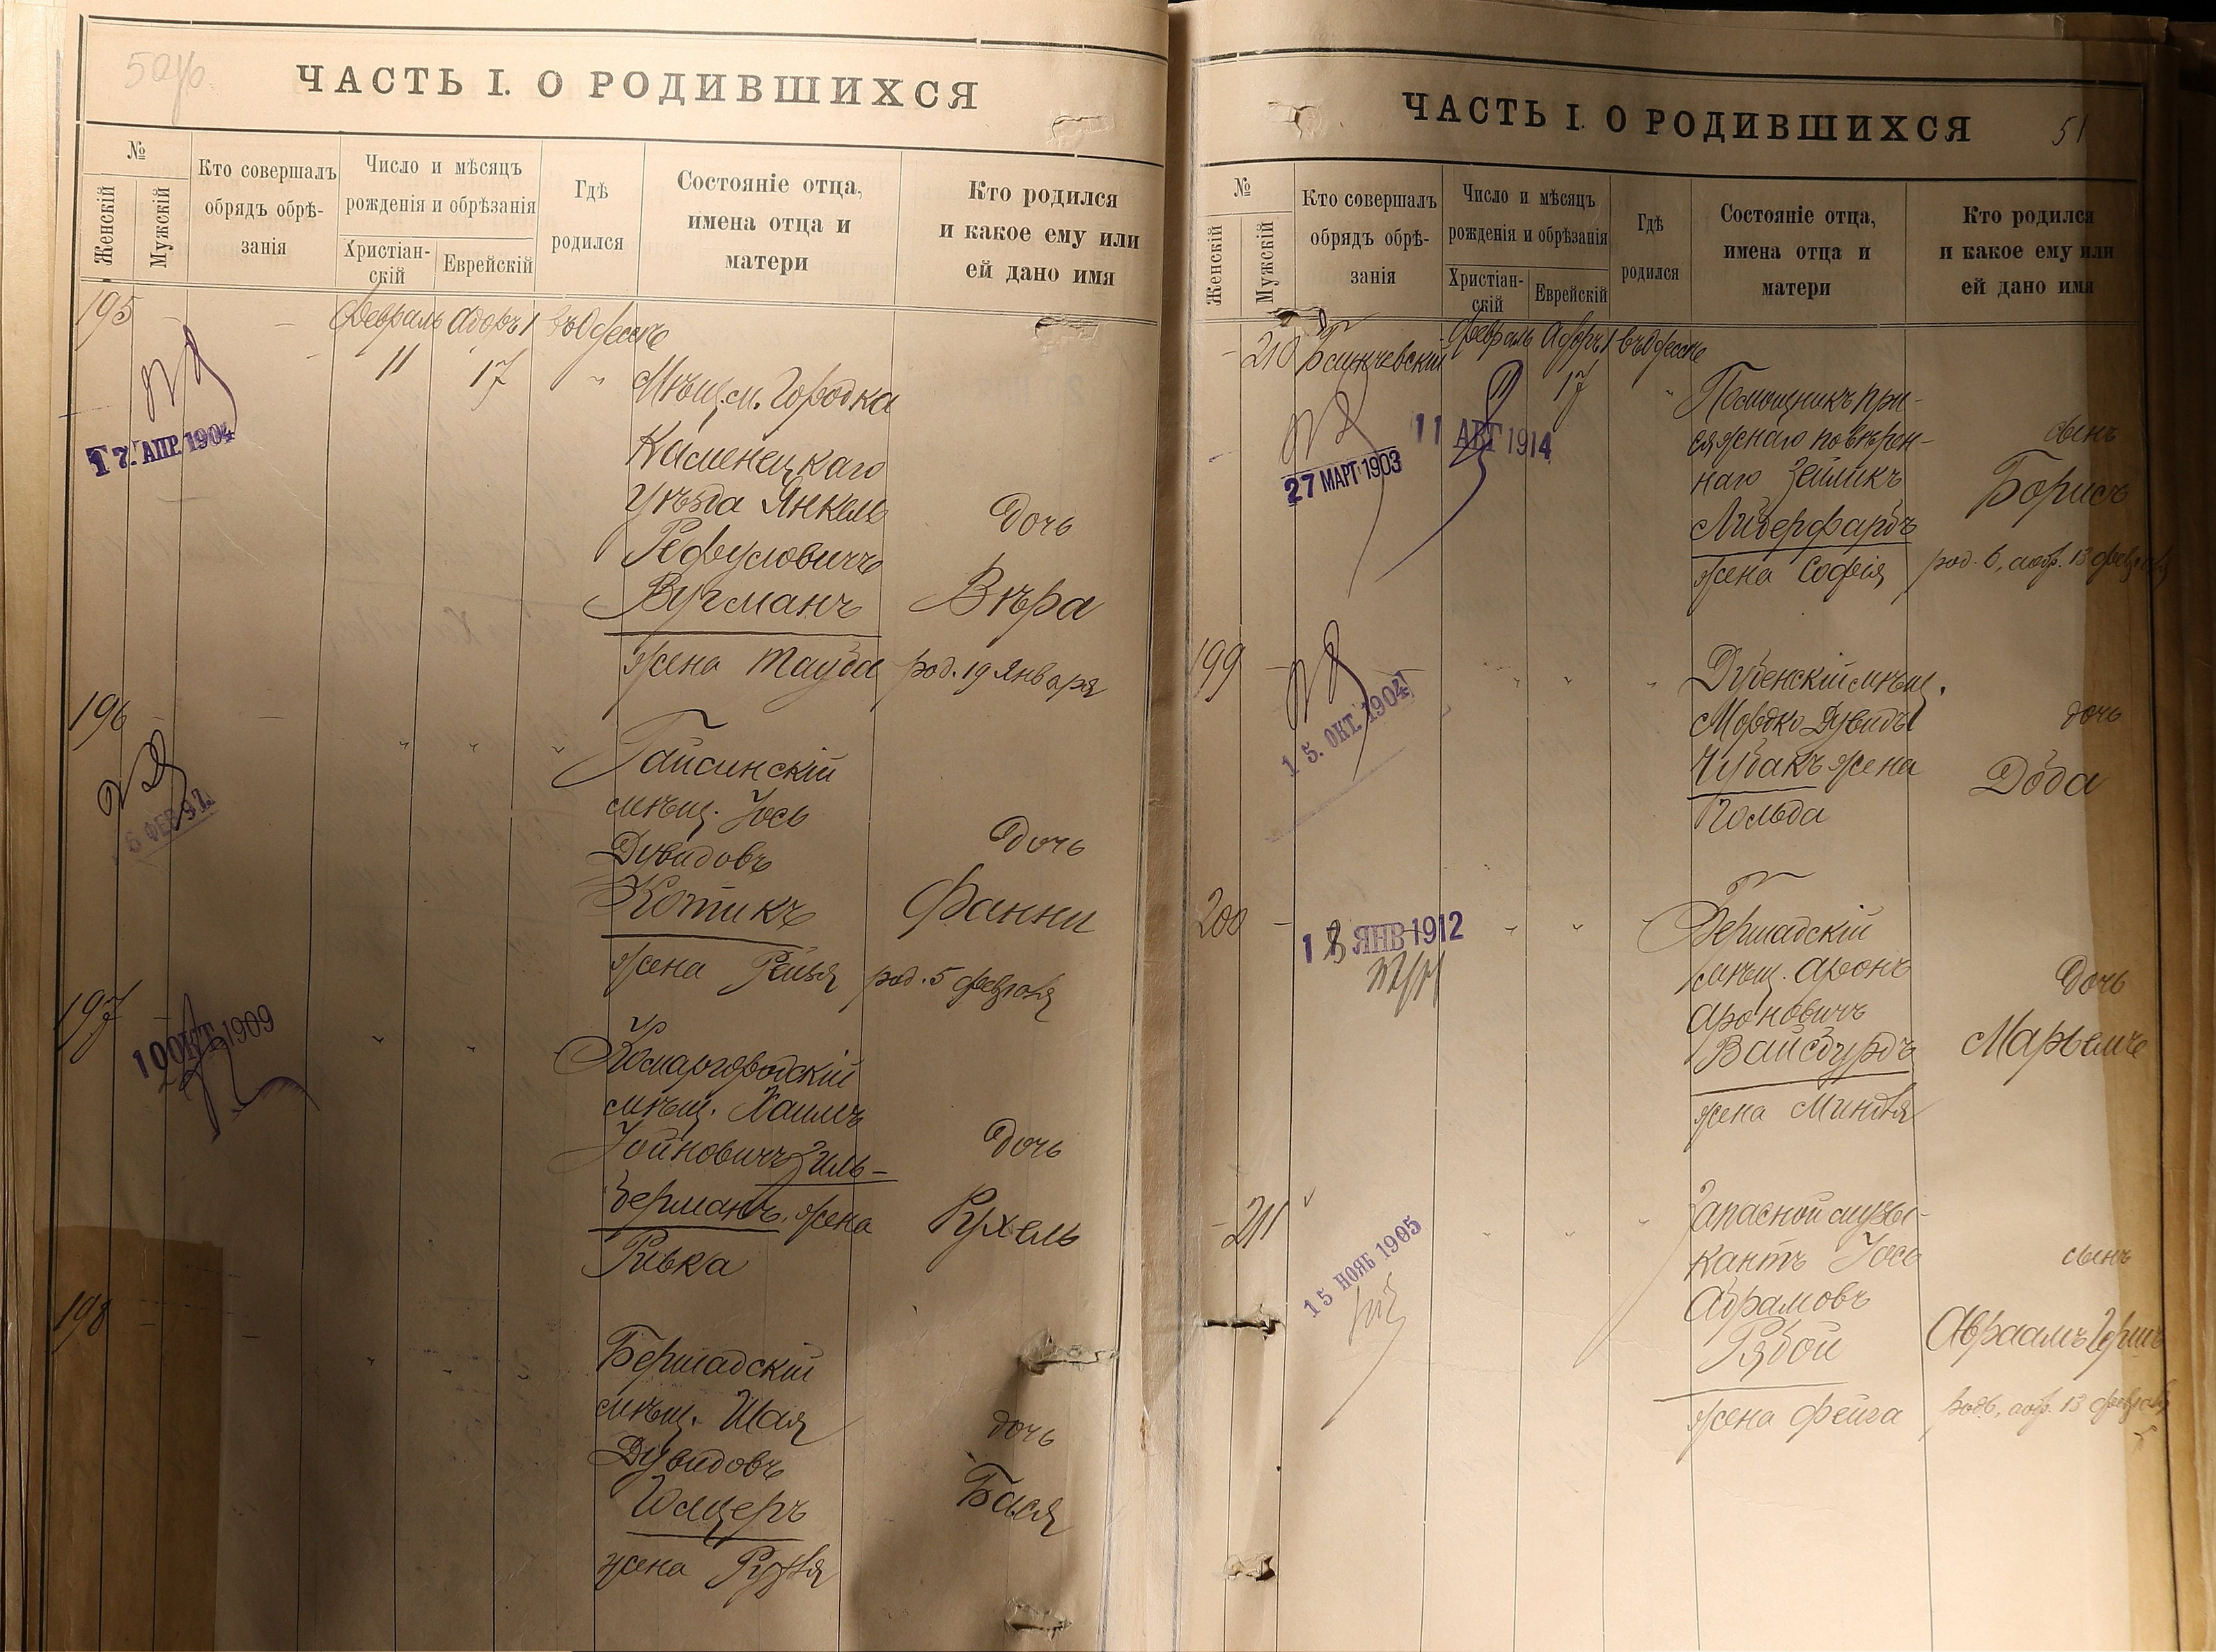 50об.
ЧАСТЬ I. О РОДИВШИХСЯ
№
Женскій
Мужскій
Кто совершалъ
обрядъ обрѣ-
занія
Число и мѣсяцъ
рожденія и обрѣзанія
Христіан-
скій
Еврейскій
Гдѣ
родился
Состояніе отца,
имена отца и
матери
Кто родился
и какое ему или
ей дано имя
195
Февраль Адаръ I въ Одессѣ
11 17
17. АПР. 1904
Мѣщ. м. Городка
Каменецкаго
уѣзда Янкель
Рефуловичъ
Вугманъ
жена Тауба
дочь
Вѣра
род. 19 Января
196
6 ФЕВ 97
Гайсинскій
мѣщ. Іось
Дувидовъ
Котикъ
жена Рейзя
дочь
Фанни
род. 5 февраля
197
10 ОКТ. 1909
Комаргородскій
мѣщ. Хаимъ
Іойновичъ Зиль-
берманъ, жена
Ривка
дочь
Рухель
198
Бершадскій
мѣщ. Шая
Дувидовъ
жена
дочь
Бася
ЧАСТЬ I. О РОДИВШИХСЯ
51
№
Женскій
Мужскій
Кто совершалъ
обрядъ обрѣ-
занія
Число и мѣсяцъ
рожденія и обрѣзанія
Христіан-
скій
Еврейскій
Гдѣ
родился
Состояніе отца,
имена отца и
матери
Кто родился
и какое ему или
ей дано имя
210
Февраль Адаръ I въ Одессѣ
11 17
27 МАРТ 1903
11 АВГ 1914
Помощникъ при-
сяжнаго повѣрен-
наго Зейликъ
Лидерфарбъ
жена Софія
сынъ
Борисъ
род. 6, 13 февраля
199
15. ОКТ. 1904
Дубенскій мѣщ.
Мордко Дувидъ
Чубакъ жена
Гольда
дочь
Доба
200
ЯНВ 1912
Бершадскій
мѣщ. Аронъ
Ароновичъ
Вайсбурдъ
жена Миндля
дочь
Марьемъ
211
15 НОЯБ 1905
Запасной музы-
кантъ Іось
Абрамовъ
Рябой
жена Фейга
сынъ
Авраамъ Герш
13 февраля